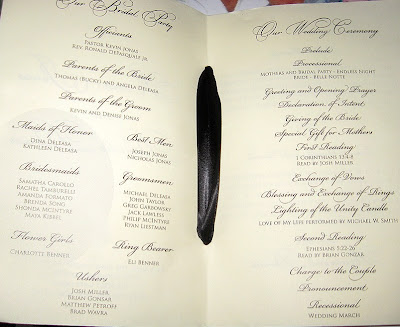 Our Bridal Party
Officiants
Pastor Kevin Jonas
Rev. Ronald DePasquale Jr.
Parents of the Bride
Thomas (Bucky) and Angela Deleasa
Parents of the Groom
Kevin and Denise Jonas
Maids of Honor
Dina Deleasa
Kathleen Deleasa
Best Men
Joseph Jonas
Nicholas Jonas
Bridesmaids
Samatha Carollo
Rachel Tamburelli
Amanda Formato
Brenda Song
Shonda McIntyre
Maya Kibbel
Groomsmen
Michael Deleasa
John Taylor
Greg Garbowsky
Jack Lawless
Philip McIntyre
Ryan Liestman
Flower Girls
Charlotte Benner
Ring Bearer
Eli Benner
Ushers
Josh Miller
Brian Gonsar
Matthew Petroff
Brad Wavra
Our Wedding Ceremony
Prelude
Processional
Mothers and Bridal Party - Endless Night
Bride - Belle Notte
Greeting and Opening Prayer
Declaration of Intent
Giving of the Bride
Special Gift for Mothers
First Reading
1 Corinthians 13:4-8
Read by Josh Miller
Exchange of Vows
Blessing and Exchange of Rings
Lighting of the Unity Candle
Love of My Life performed by Michael W. Smith
Second Reading
Ephesians 5:22-26
Read by Brian Gonzar
Charge to the Couple
Pronouncement
Recessional
Wedding March